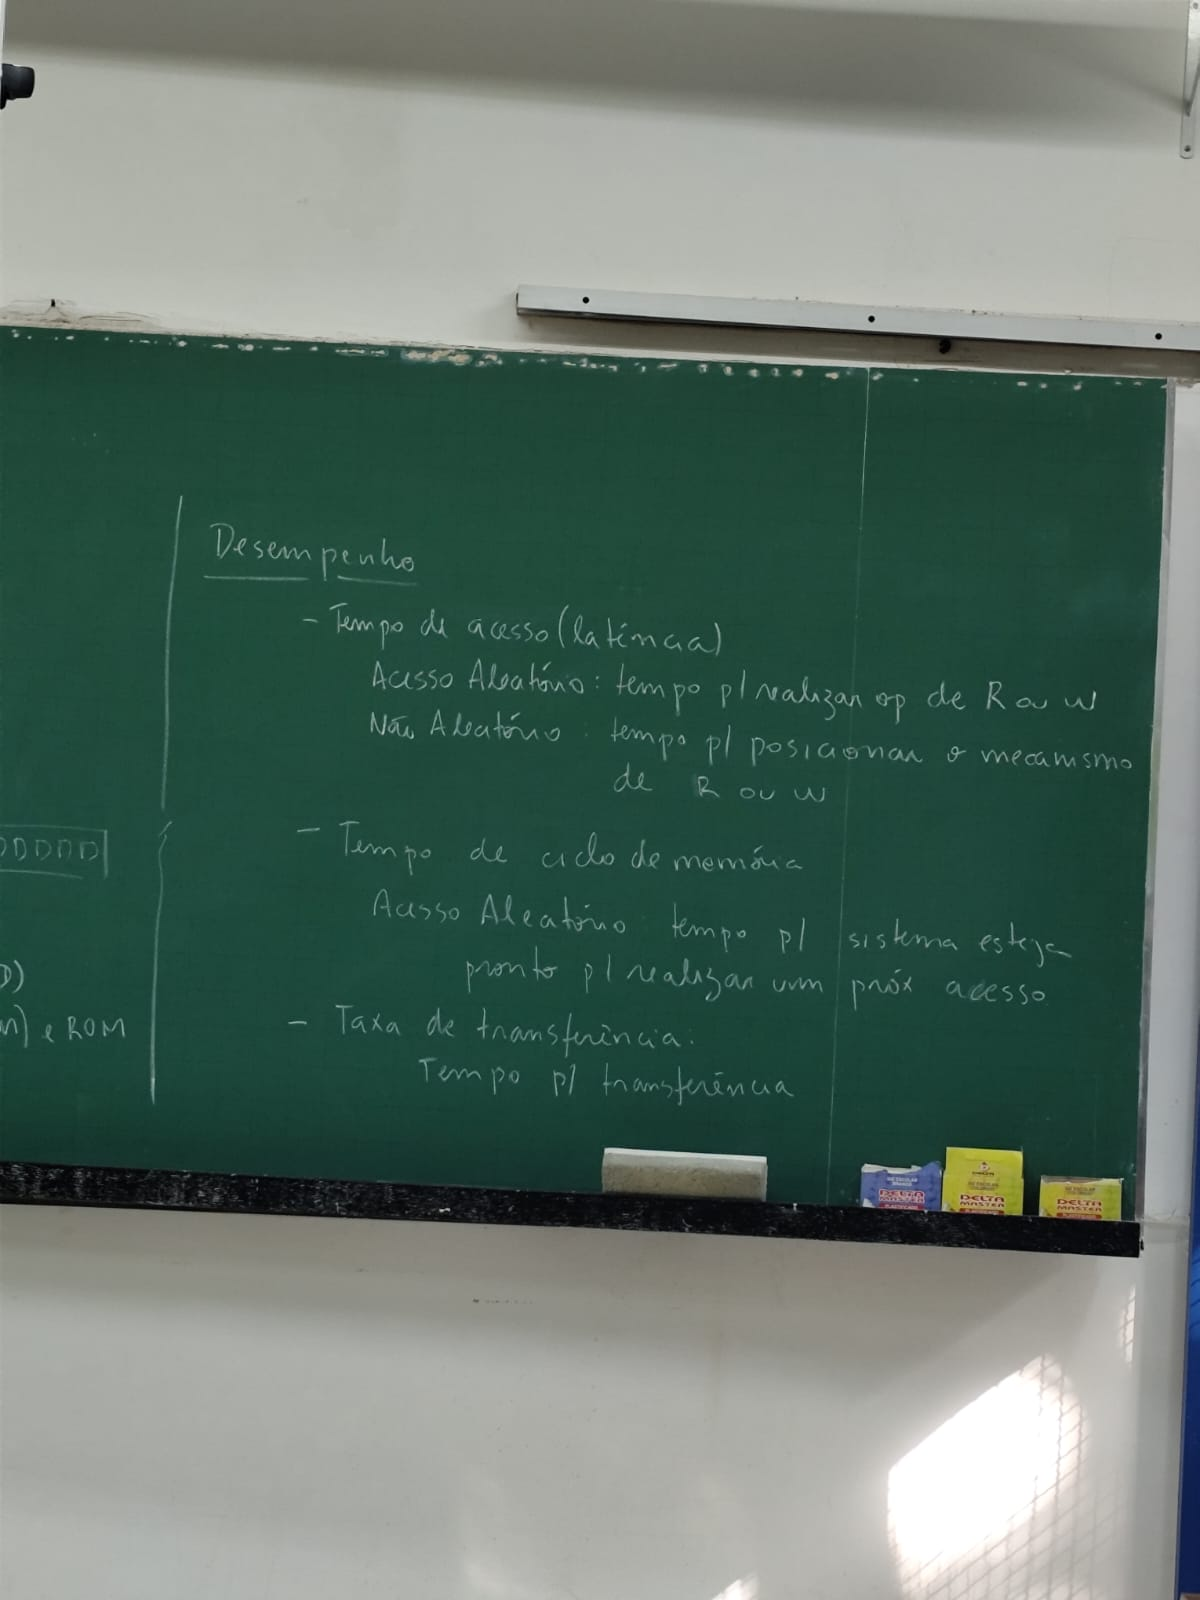 Desempenho
- Tempo de acesso (latência)
Acesso Aleatório: tempo p/ realizar op de R ou W
Não Aleatório: tempo p/ posicionar o mecanismo
de R ou W
- Tempo de ciclo de memória
Acesso Aleatório: tempo p/ sistema esteja
pronto p/ realizar um próx acesso
- Taxa de transferência:
Tempo p/ transferência
DDDDD
D)
) e ROM
DELTA
MASTER
DELTA
MASTER
DELTA
MASTER